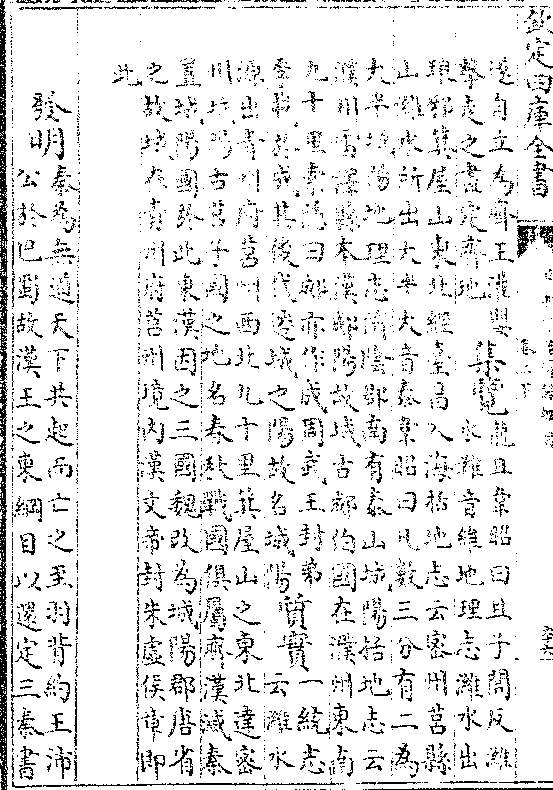 欽定四庫全書
還自立為齊王灌嬰集覽龍且韋昭曰且子閭反濰
擊走之盡定齊地水濰音維地理志濰水出
琅邪箕屋山東北經臺昌入海括地志云密州莒縣
山濰水所出大半大音泰韋昭曰凡數三分有二為
大半城陽地理志濟陰郡南有泰山城陽括地志云
濮州雷澤縣本漢郕陽故城古郕伯國在濮州東南
九十里索隱曰郕亦作成周武王封弟
季載於成其後代遷城之陽故名城陽質實一統志云濰水
源出青州府莒州西北九十里箕屋山之東北達密
州城陽古莒子國之地名春秋戰國俱屬齊漢滅秦
置城陽國於此東漢因之三國魏改為城陽郡唐省
之故城在青州府莒州境內漢文帝封朱虛侯章即
此
發明秦為無道天下共起而亡之至羽背約王沛
公於巴蜀故漢王之東綱目以還定三秦書